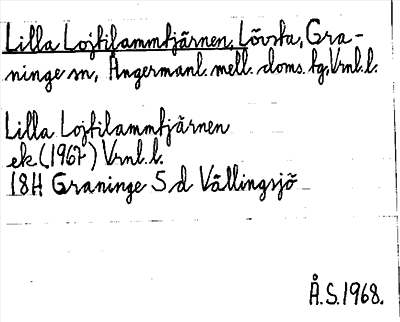 Lilla Lojtilammtjärnen, Lövsta, Gra-
ninge sn, Ångermanl. mell. doms. tg, Vrnl. l.
Lilla Lojtilammtjärnen
ek (1967) Vrnl. l.
18H Graninge 5 d Vällingsjö
Å.S. 1968.